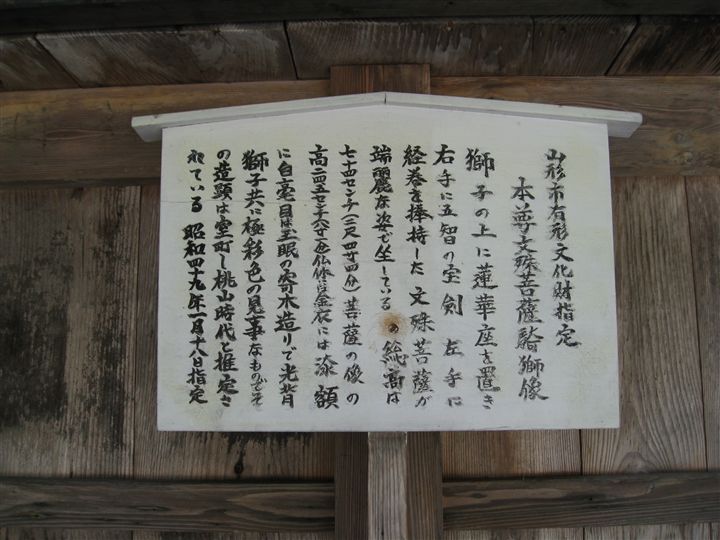 山形市有形文化財指定
本尊文殊菩薩騎獅像
獅子の上に蓮華座を置き
右手に五智の宝剣 左手に
経巻を捧持した文殊菩薩が
端麗な姿で坐している の総高は
七十四センチ(二尺四寸四分)菩薩の像の
高二四五センチ(八寸 )仏体には金衣には漆 額
に白毫目は玉眼の寄木造りで光背
獅子共に極彩色の見事なものでそ
の造顕は室町し桃山時代と推定さ
れている 昭和四十九年一月十八日指定